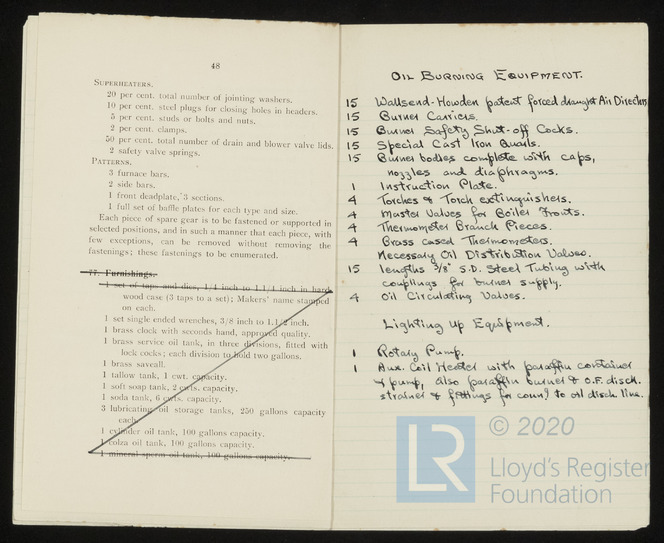 48
SUPERHEATERS.
20 per cent. total number of jointing washers.
10 per cent. steel plugs for closing holes in headers.
5 per cent. studs or bolts and nuts.
2 per cent. clamps.
50 per cent. total number of drain and blower valve lids.
2 safety valve springs.
PATTERNS.
3 furnace bars.
2 side bars.
1 front deadplate, 3 sections.
1 full set of baffle plates for each type and size.
Each piece of spare gear is to be fastened or supported in
selected positions, and in such a manner that each piece, with
few exceptions, can be removed without removing the
fastenings; these fastenings to be enumerated.
77. Furnishings.
1 set of taps and dies, 1/4 inch to 1.1/4 inch in hard
wood case (3 taps to a set); Makers' name stamped
on each.
1 set single ended wrenches, 3/8 inch to 1.1/2 inch.
1 brass clock with seconds hand, approved quality.
1 brass service oil tank, in three divisions, fitted with
lock cocks; each division to hold two gallons.
1 brass saveall.
1 tallow tank, 1 cwt. capacity.
1 soft soap tank, 2 cwts. capacity.
1 soda tank, 6 cwts. capacity.
3 lubricating oil storage tanks, 250 gallons capacity
each.
1 cylinder oil tank, 100 gallons capacity.
1 colza oil tank, 100 gallons capacity.
1 mineral sperm oil tank, 100 gallons capacity.
OIL BURNING EQUIPMENT.
15 Wallsend-Howden patent forced draught Air Directors
15 Burner Carriers.
15 Burner Safety Shut-off Cocks.
15 Special Cast Iron Quarls.
15 Burner bodies complete with caps,
nozzles and diaphragms.
1 Instruction Plate.
4 Torches & Torch extinguishers.
4 Master Valves for Boiler Fronts.
4 Thermometer Branch Pieces.
4 Brass cased Thermometers.
Necessary Oil Distribution Valves.
15 lengths 3/8" S.D. Steel Tubing with
couplings for burner supply.
4 Oil Circulating Valves.
Lighting Up Equipment.
1 Rotary Pump.
1 Aux. Coil Heater with paraffin container
& pump, also paraffin burner & O.F. disch.
strainer & fittings for conn? to oil disch. line.
© 2020
LR
Lloyd's Register
Foundation